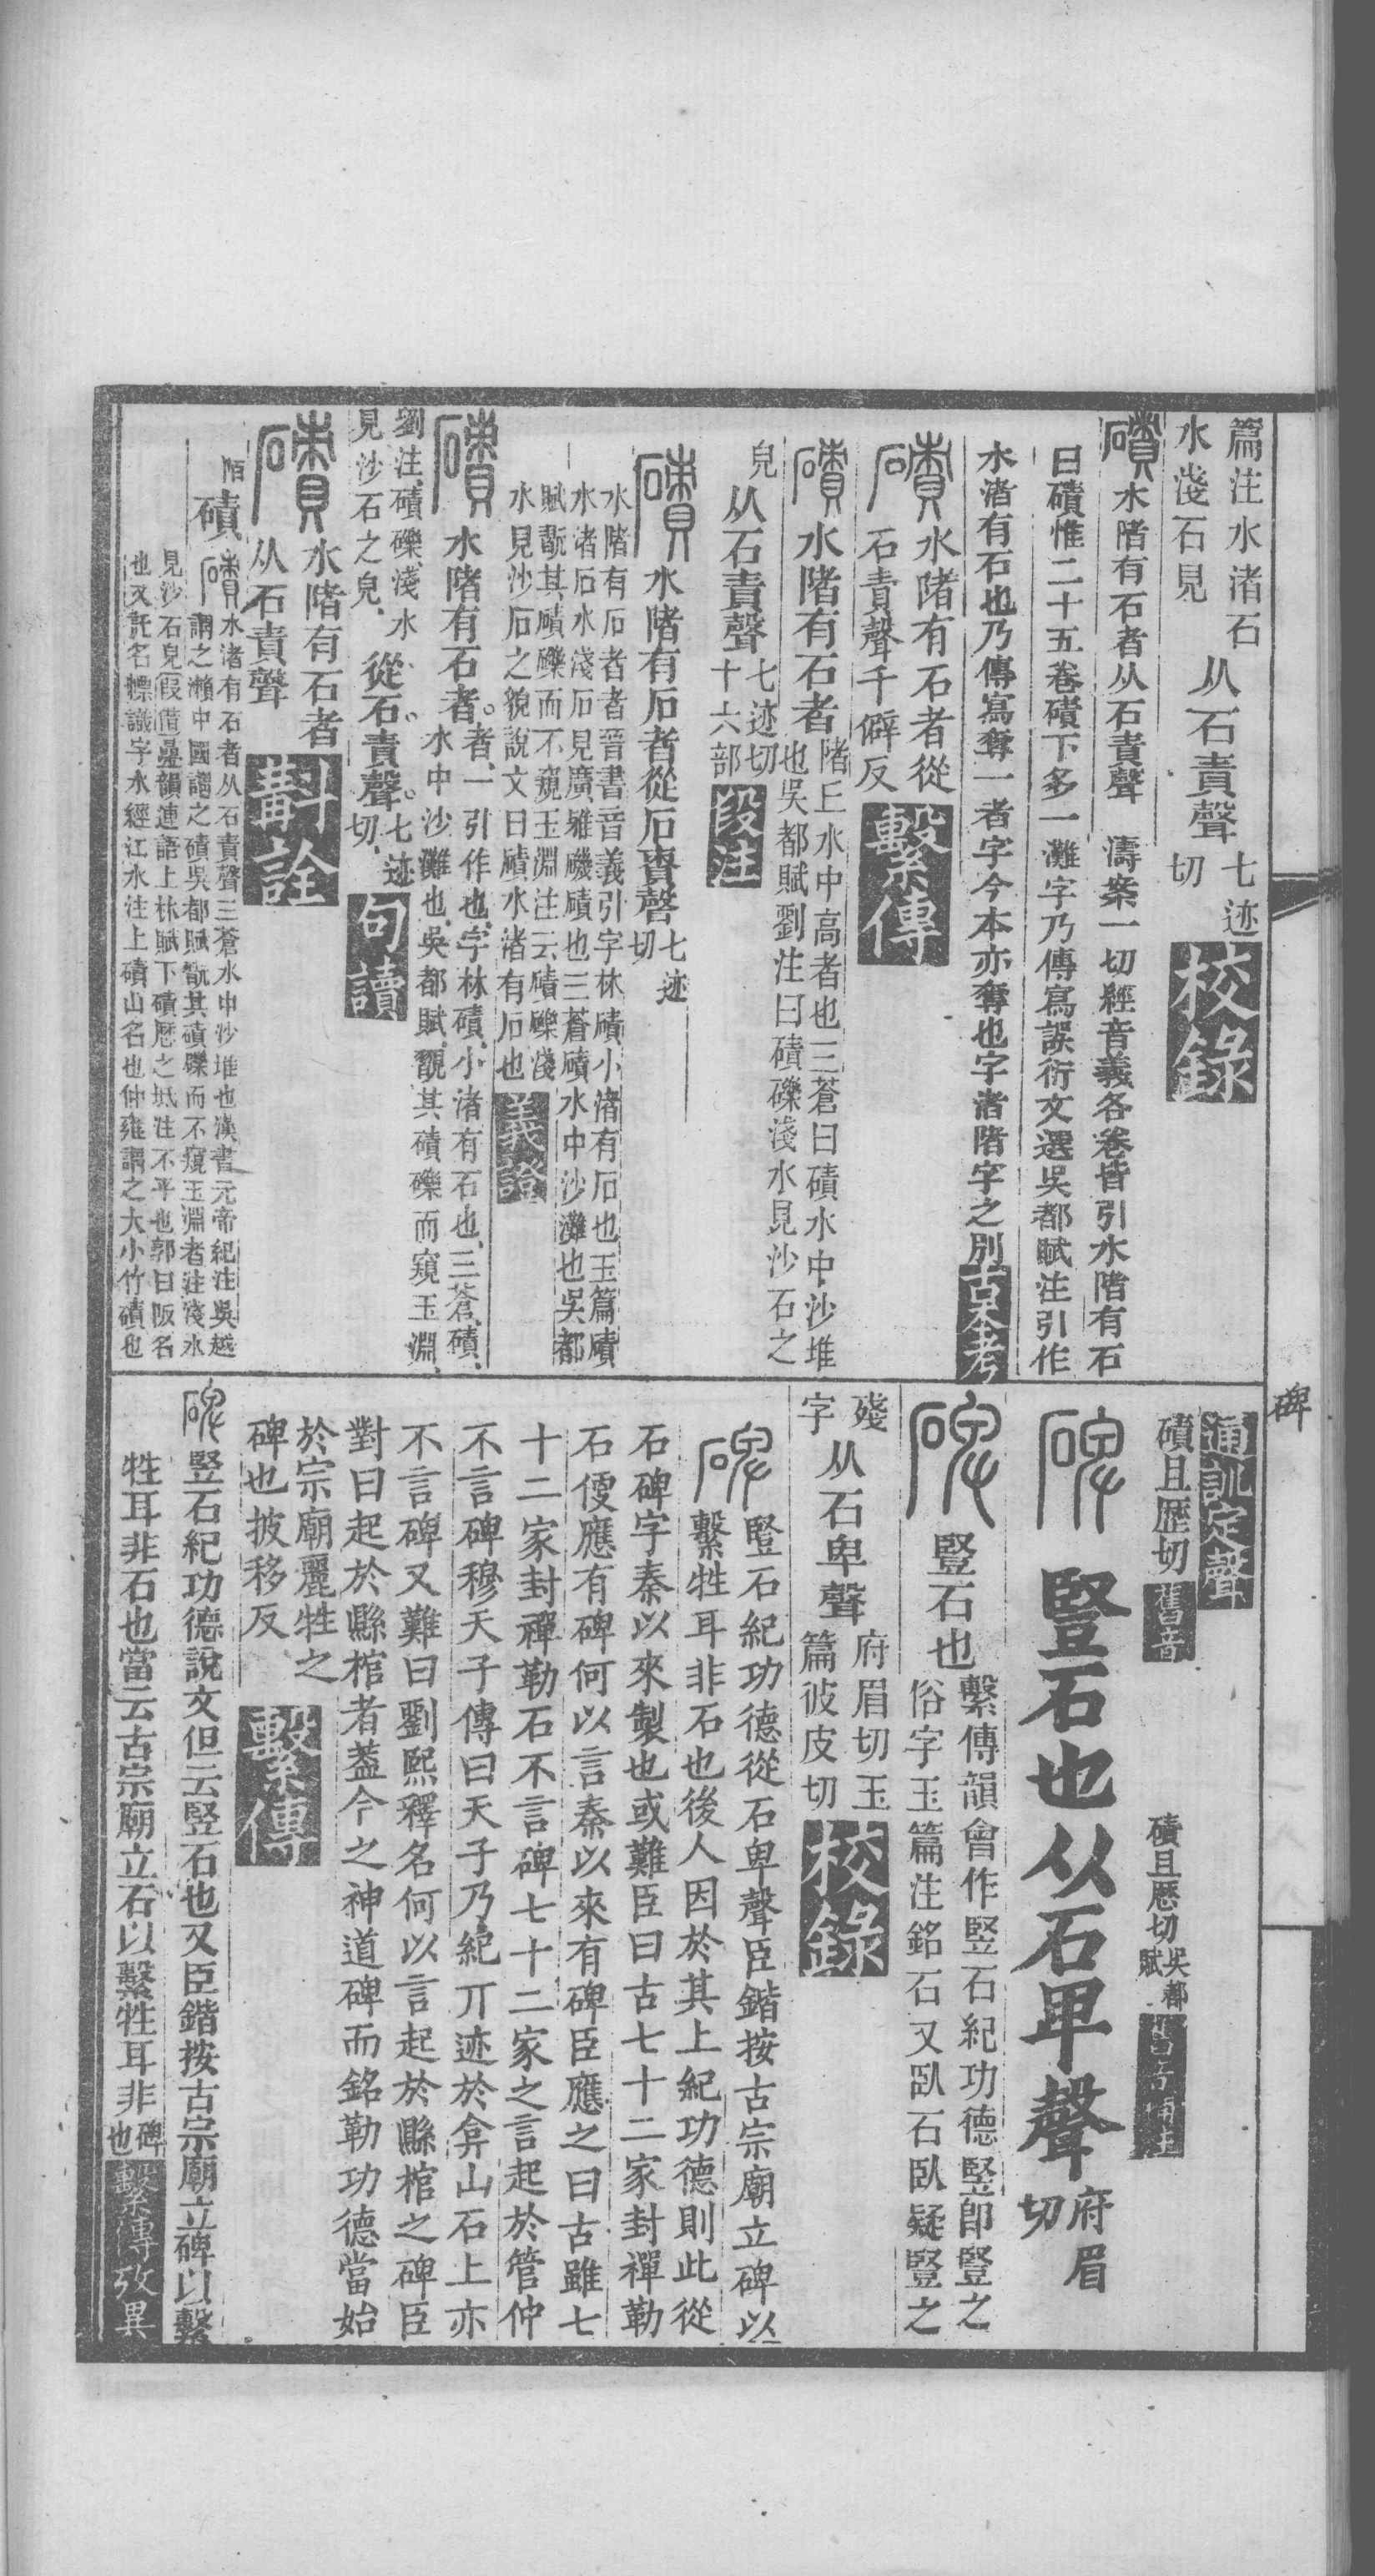 篇注水渚石
水淺石見
从石責聲
七迹
切
校錄
磧水陼有石者从石責聲
濤案一切經音義各卷皆引水陼有石
曰磧惟二十五卷磧下多一灘字乃傳寫誤衍文選吳都賦注引作
水渚有石也乃傳寫奪一者字今本亦奪也字渚陼字之別
古本考
磧水陼有石者從
石責聲千僻反
繫傳
磧水陼有石者
陼丘水中高者也三蒼曰磧水中沙堆
也吳都賦劉注曰磧礫淺水見沙石之
皃
从石責聲
七迹切
十六部
段注
磧水陼有石者從石責聲
七迹
切
水陼有石者者晉書音義引字林磧小渚有石也玉篇磧
水渚石水淺石見廣雅磯磧也三蒼磧水中沙灘也吳都
賦翫其磧礫而不窺玉淵注云磧礫淺
水見沙石之貌說文曰磧水渚有石也
義證
磧水陼有石者。
者、一引作也、字林磧、小渚有石也、三蒼、磧、
水中沙灘也、吳都賦、翫其磧礫而窺玉淵、
劉注、磧礫、淺水
見沙石之皃、
從石。責聲。
七迹
切、
句讀
磧水陼有石者
从石責聲
斠詮
陌
磧
磧水渚有石者从石責聲三蒼水中沙堆也漢書元帝紀注吳越
謂之瀨中國謂之磧吳都賦翫其磧礫而不窺玉淵者注淺水
見沙石皃假借疊韻連語上林賦下磧歷之坻注不平也郭曰阪名
也又託名幖識字水經江水注上磧山名也仲雍謂之大小竹磧也
碑
通訓定聲
磧且歷切
舊音
磧且歷切
吳都
賦
舊音補注
碑 豎石也从石卑聲
府眉
切
碑豎石也
繫傳韻會作竪石紀功德竪卽豎之
俗字玉篇注銘石又臥石臥疑豎之
殘
字
从石卑聲
府眉切玉
篇彼皮切
校錄
碑豎石紀功德從石卑聲臣鍇按古宗廟立碑以
繫牲耳非石也後人因於其上紀功德則此從
石碑字秦以來製也或難臣曰古七十二家封禪勒
石便應有碑何以言秦以來有碑臣應之曰古雖七
十二家封禪勒石不言碑七十二家之言起於管仲
不言碑穆天子傳曰天子乃紀丌迹於弇山石上亦
不言碑又難曰劉熙釋名何以言起於縣棺之碑臣
對曰起於縣棺者葢今之神道碑而銘勒功德當始
於宗廟麗牲之
碑也披移反
繫傳
碑竪石紀功德說文但云竪石也又臣鍇按古宗廟立碑以繫
牲耳非石也當云古宗廟立石以繫牲耳非
碑
也
繫傳攷異